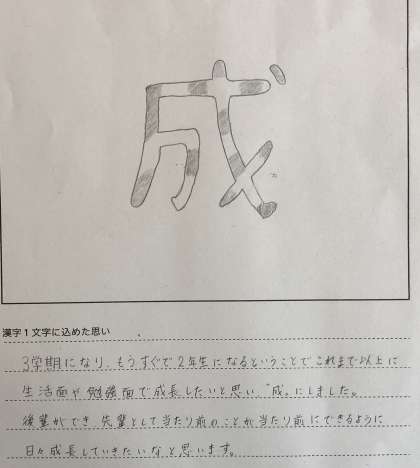 成
漢字1文字に込めた思い
3学期になり、もうすぐで2年生になるということでこれまで以上に
生活面や勉強面で成長したいと思い、"成"にしました。
後輩ができ、先輩として当たり前のことが当たり前にできるように
日々成長していきたいなと思います。